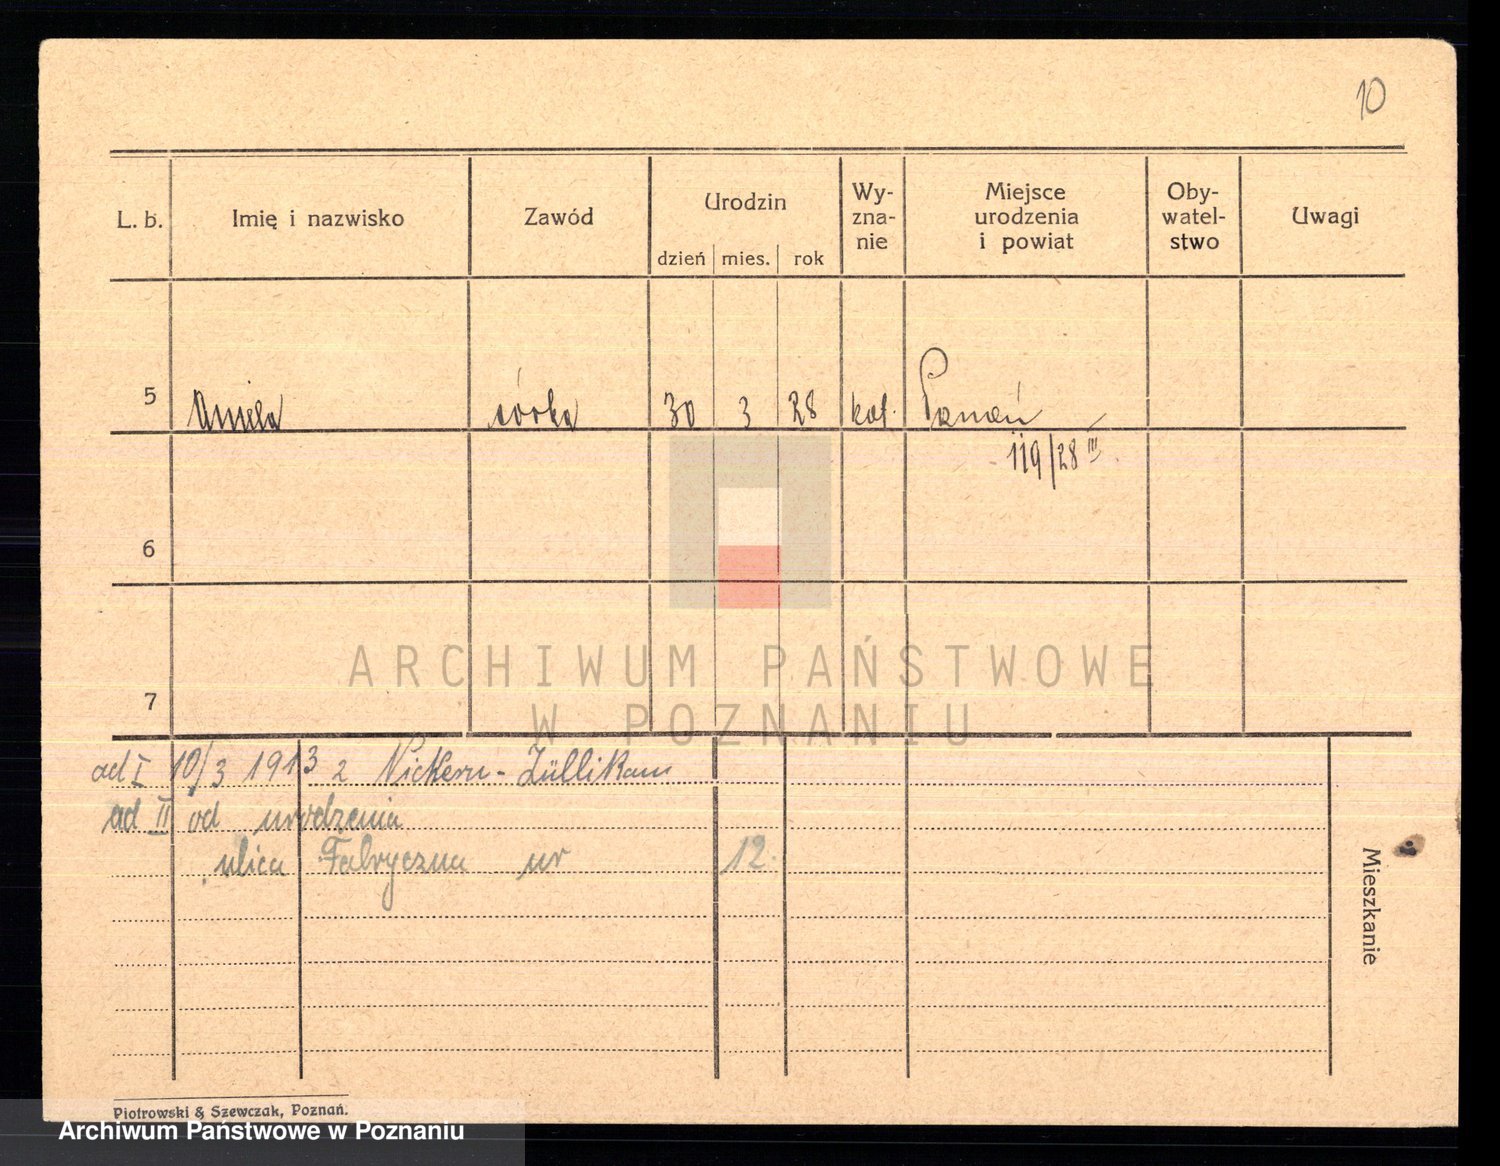 10
L. b. Imię i nazwisko Zawód Urodzin Wy-zna-nie Miejsce urodzenia i powiat Oby-watel-stwo Uwagi
dzień mies. rok
5 Aniela córka 30 3 28 kat. Poznań
119/28 III
6
7
ARCHIWUM PAŃSTWOWE
W POZNANIU
ad I 10/3 1913 z Nickern-Züllikau
ad II od urodzenia
ulica Fabryczna nr 12.
Mieszkanie
Piotrowski & Szewczak, Poznań.
Archiwum Państwowe w Poznaniu